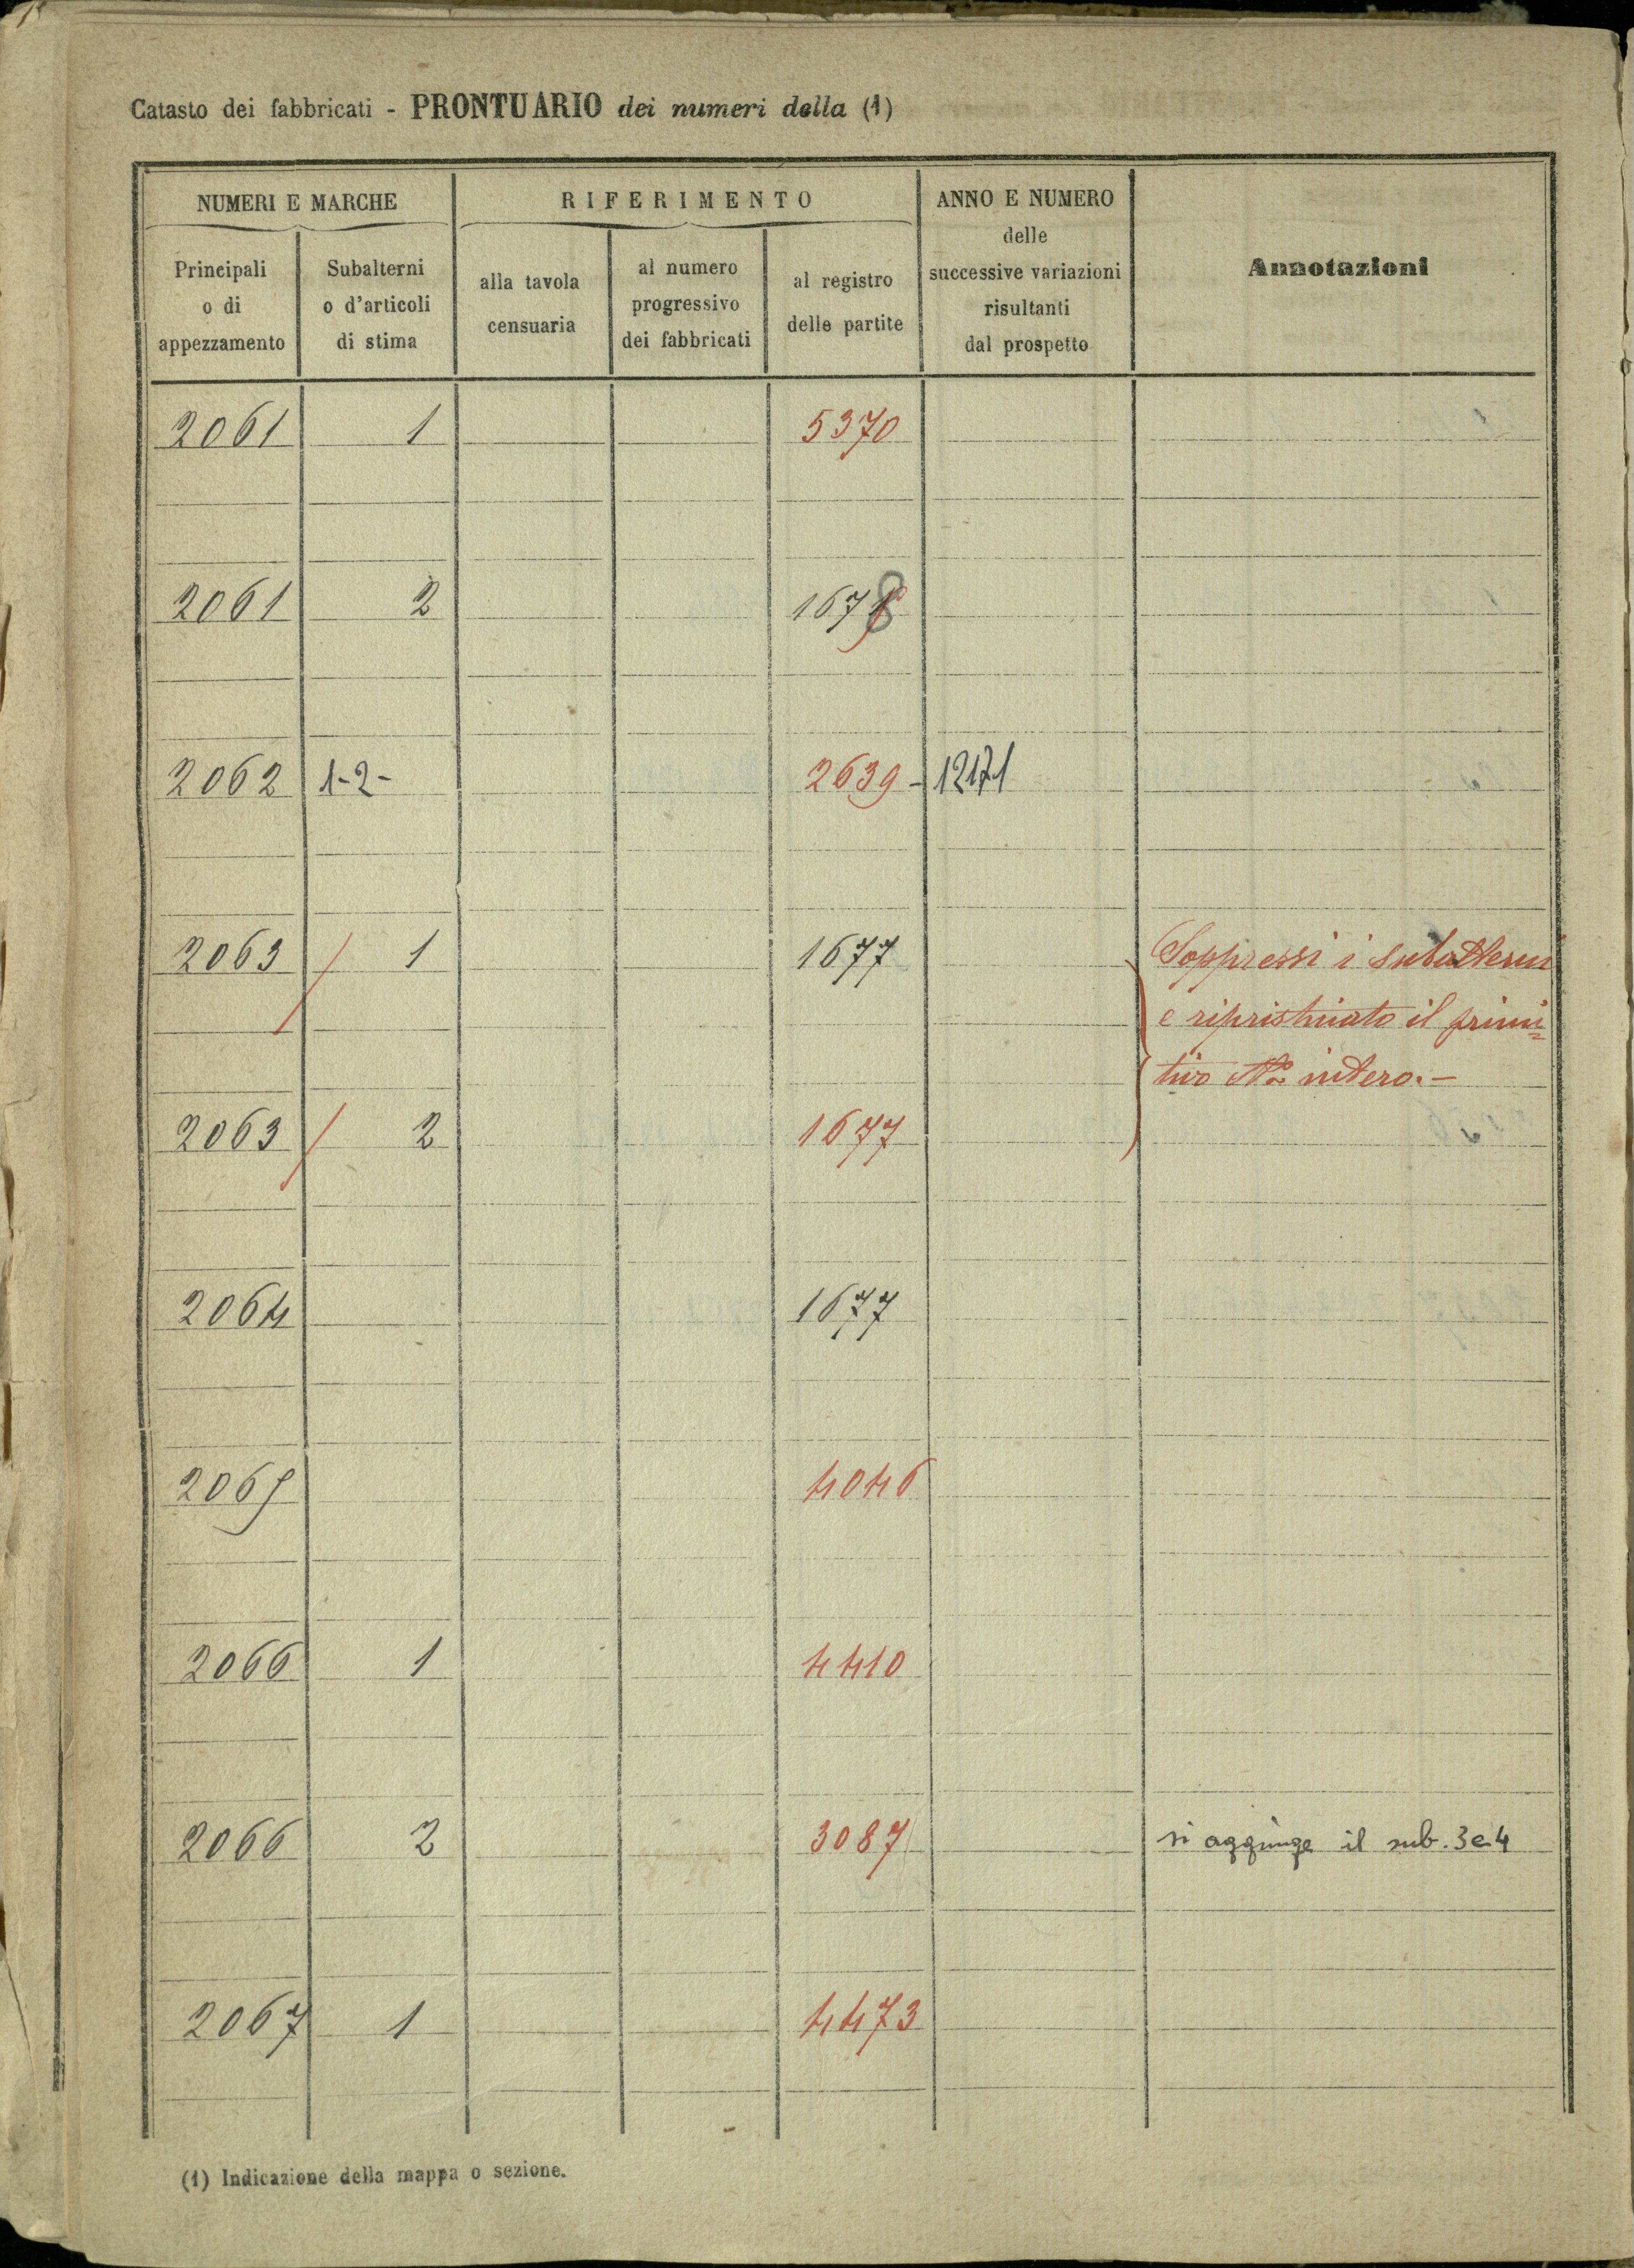 Catasto dei fabbricati - PRONTUARIO dei numeri della (1)
NUMERI E MARCHE
RIFERIMENTO
ANNO E NUMERO
delle
successive variazioni
risultanti
dal prospetto
Annotazioni
Principali
o di
appezzamento
Subalterni
o d'articoli
di stima
alla tavola
censuaria
al numero
progressivo
dei fabbricati
al registro
delle partite
2061 1 5370
2061 2 1678
2062 1-2- 2639 - 12171
2063 / 1 1677 Soppressi i subalterni
e ripristinato il primi=
tivo No intero. -
2063 / 2 1677
2064 1677
2065 4046
2066 1 4410
2066 2 3087 si aggiunge il sub. 3 e 4
2067 1 4473
(1) Indicazione della mappa o sezione.